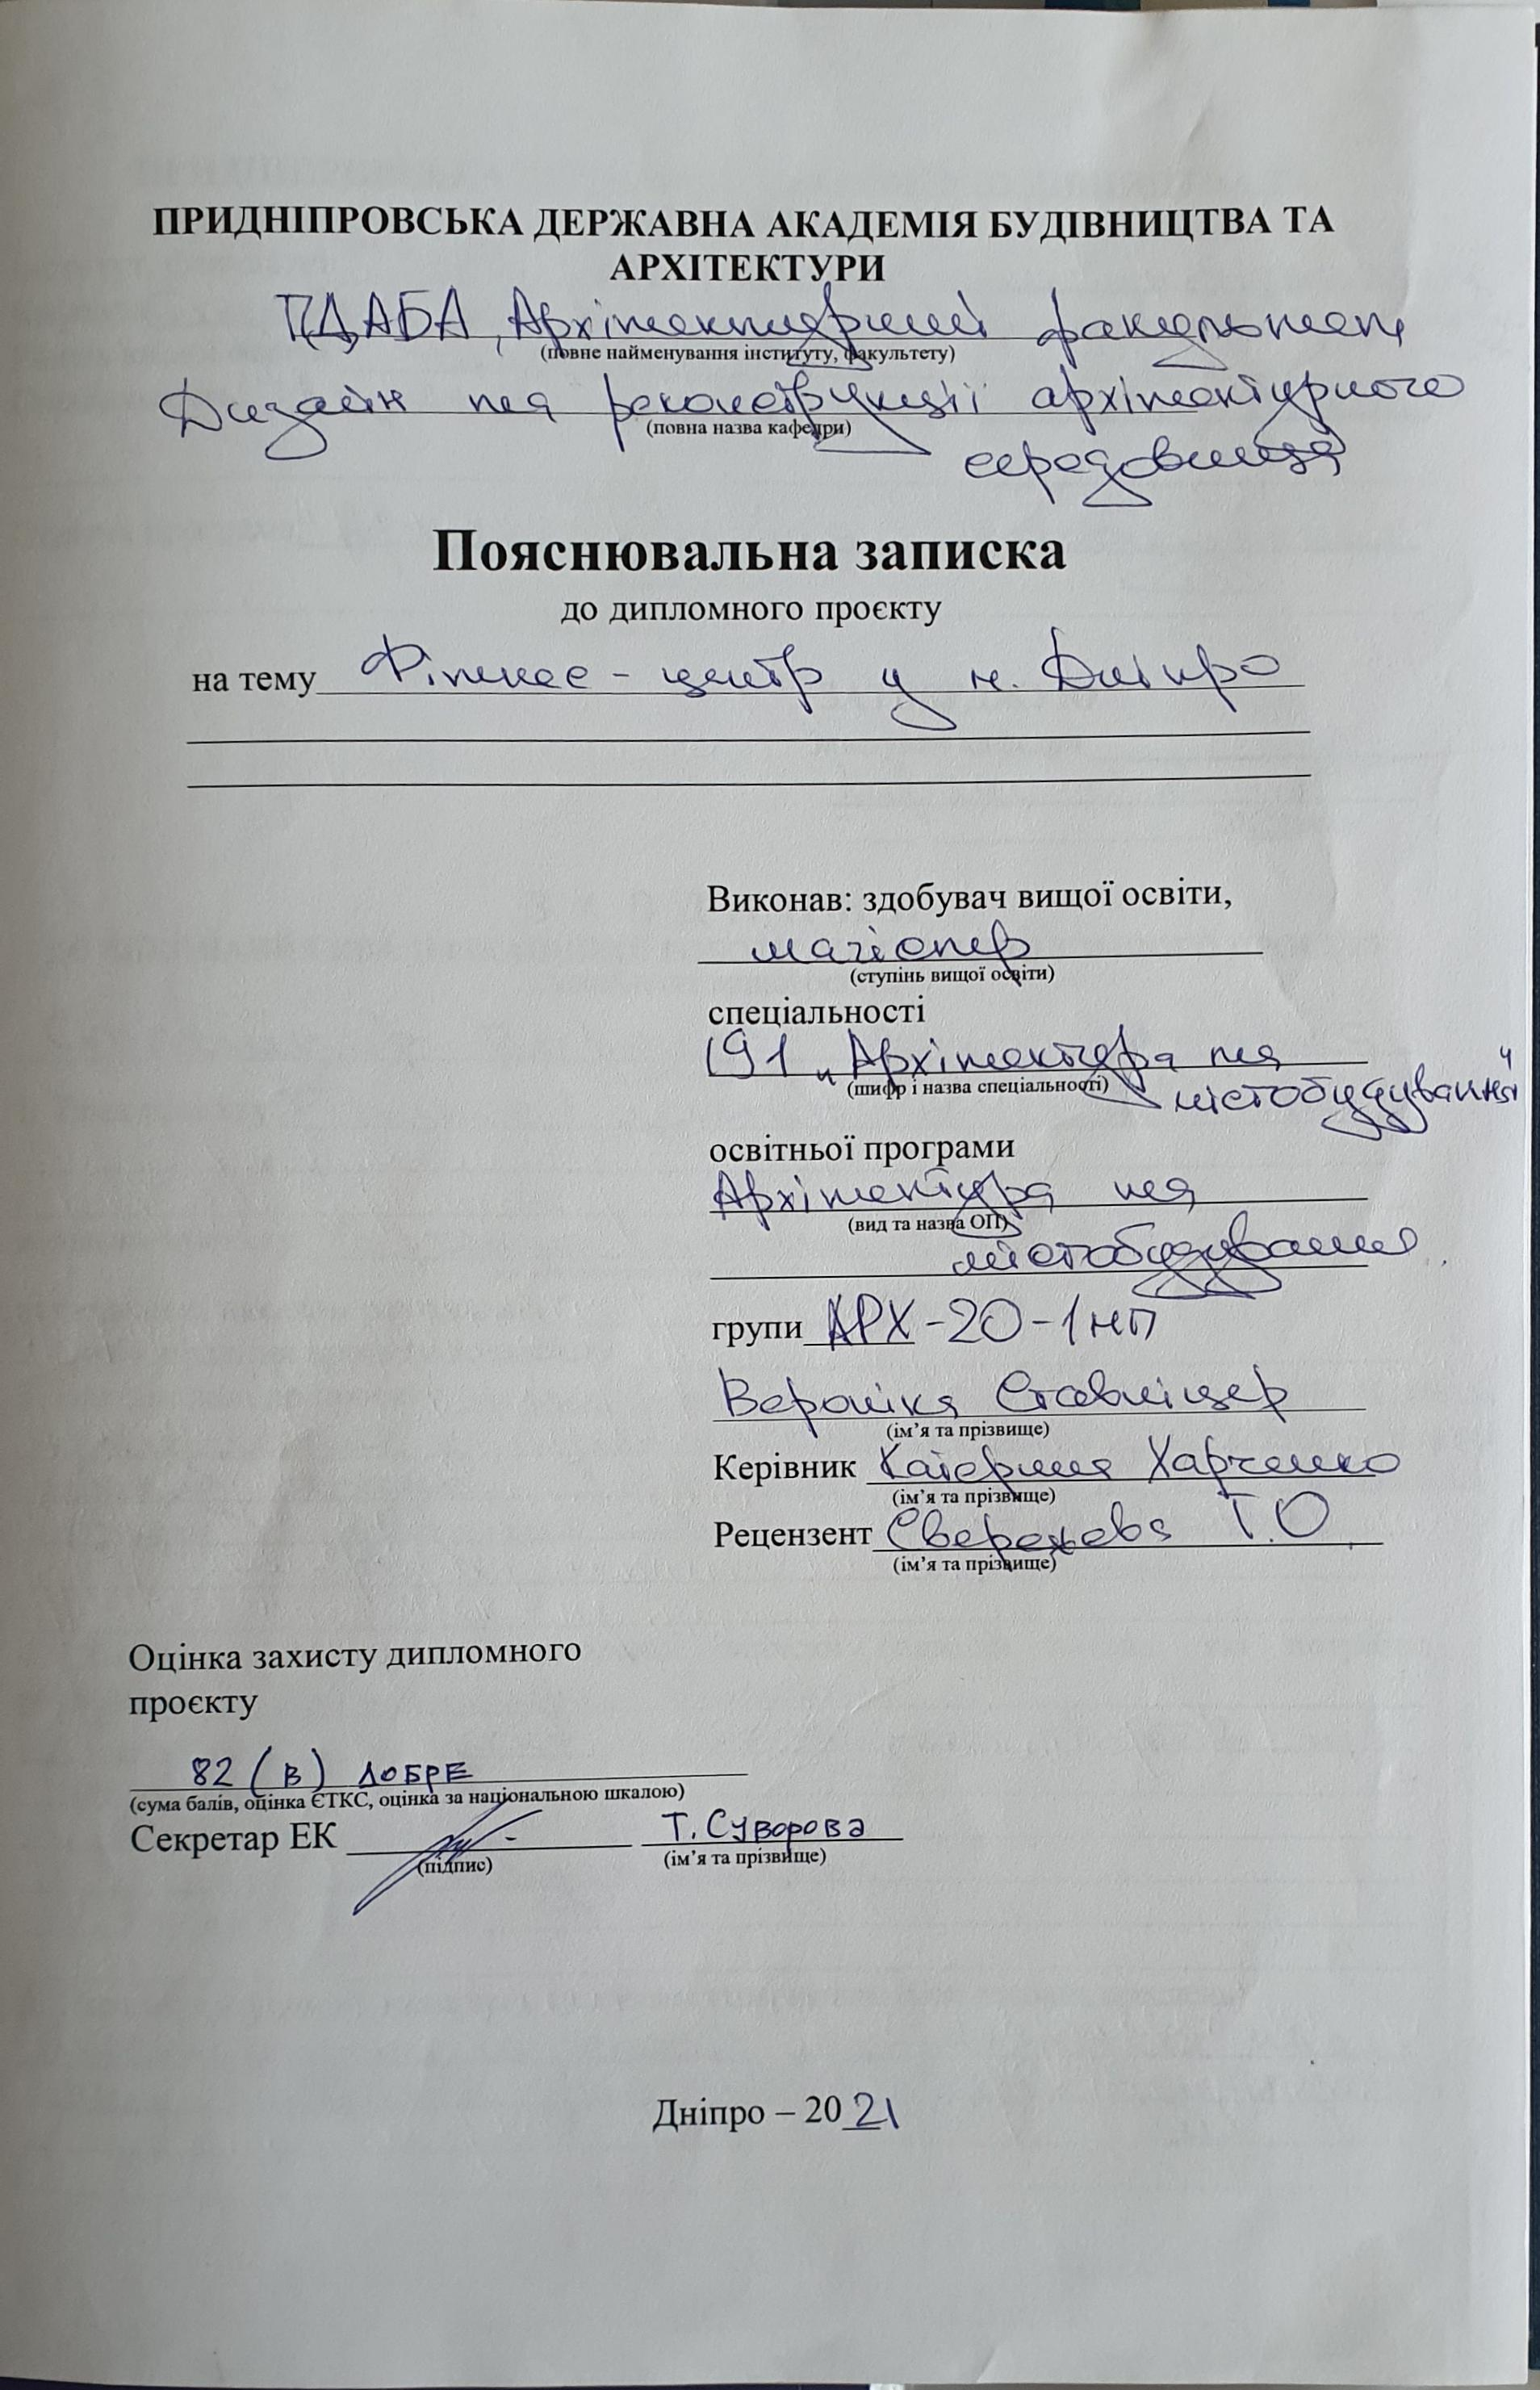 ПРИДНІПРОВСЬКА ДЕРЖАВНА АКАДЕМІЯ БУДІВНИЦТВА ТА
АРХІТЕКТУРИ
ПДАБА, Архітектурний факультет
(повне найменування інституту, факультету)
Дизайн та реконструкції архітектурного
(повна назва кафедри)
середовища
Пояснювальна записка
до дипломного проєкту
на тему Фітнес - центр у м. Дніпро
Виконав: здобувач вищої освіти,
магістр
(ступінь вищої освіти)
спеціальності
191 „Архітектура та
(шифр і назва спеціальності)
містобудування"
освітньої програми
Архітектура та
(вид та назва ОП)
містобудування
групи АРХ-20-1мп
Вероніка Ставніцер
(ім’я та прізвище)
Керівник Катерина Харченко
(ім’я та прізвище)
Рецензент Свережева Т.О
(ім’я та прізвище)
Оцінка захисту дипломного
проєкту
82 (В) ДОБРЕ
(сума балів, оцінка ЄТКС, оцінка за національною шкалою)
Секретар ЕК Т. Суворова
(підпис) (ім’я та прізвище)
Дніпро – 2021